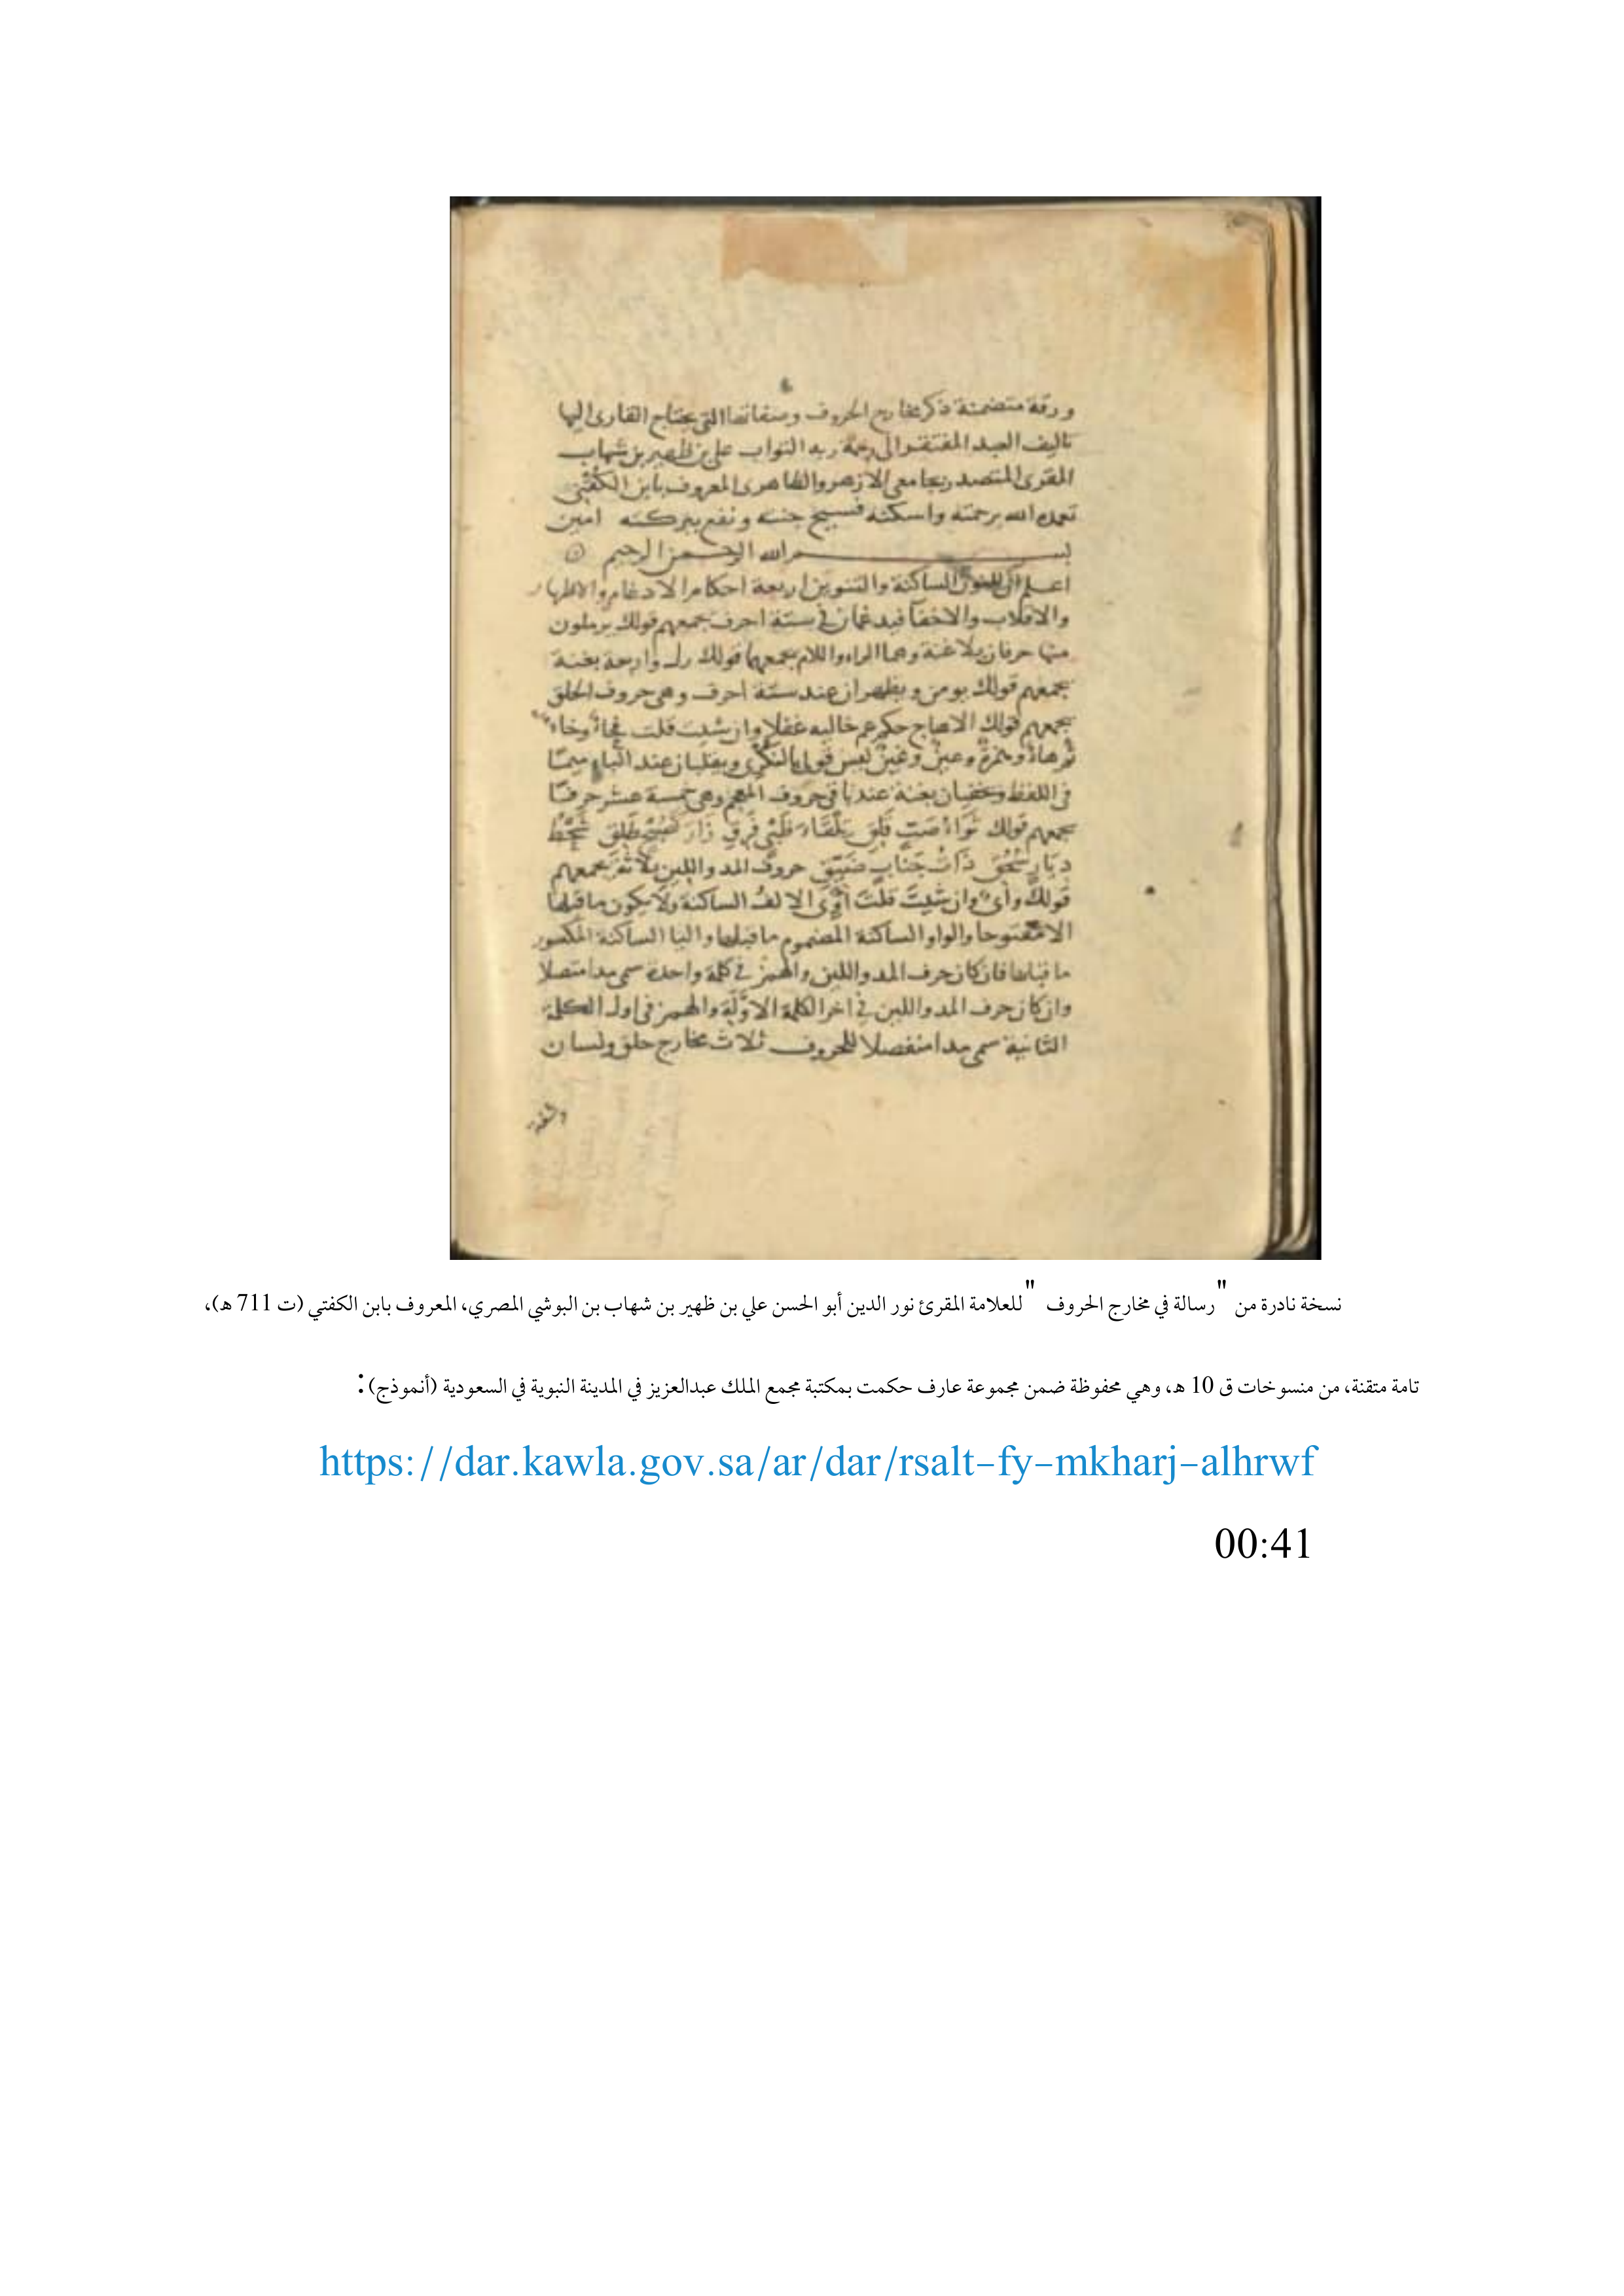 ورقة متضمنة ذكر مخارج الحروف وصفاتها التى يحتاج القارى اليها
تاليف العبد المفتقر الى رحمة ربه التواب على بن ظهير بن شهاب
المقرى المتصدر بجامعى الازهر والظاهرى المعروف بابن الكفتى
تغمده الله برحمته واسكنه فسيح جنته ونفع ببركته امين
بسم الله الرحمن الرحيم
اعلم ان للنون الساكنة والتنوين اربعة احكام الادغام والاظهار
والاقلاب والاخفا فيدغمان في ستة احرف يجمعهم قولك يرملون
منها حرفان بلا غنة وهما الراء واللام يجمعها قولك رل واربعة بغنة
يجمعهم قولك يومن ويظهران عند ستة احرف وهى حروف الحلق
يجمعهم قولك الا هاج حكم عم خاليه غفلا وان شيت قلت فحاء وخاء
ثم هاء وهمزة وعين وغين ليس قولى بالنكرى ويقلبان عند الباء ميما
فى اللفظ ويخفيان بغنة عند باقى حروف المعجم وهى خمسة عشر حرفا
يجمعهم قولك
ديار ذات جناب ضيق حروف المد واللين ثلاثة يجمعهم
قولك واى وان شيت قلت اوى الالف الساكنة ولا يكون ما قبلها
الا مفتوحا والواو الساكنة المضموم ما قبلها واليا الساكنة المكسور
ما قبلها فان كان حرف المد واللين والهمز في كلمة واحدة سمى مدا متصلا
وان كان حرف المد واللين في اخر الكلمة الاولة والهمز فى اول الكلمة
الثانية سمى مدا منفصلا للحروف ثلاث مخارج حلق ولسان
وشفة
نسخة نادرة من "رسالة في مخارج الحروف" للعلامة المقرئ نور الدين أبو الحسن علي بن ظهير بن شهاب بن البوشي المصري، المعروف بابن الكفتي (ت 711 هـ)،
تامة متقنة، من منسوخات ق 10 هـ، وهي محفوظة ضمن مجموعة عارف حكمت بمكتبة مجمع الملك عبدالعزيز في المدينة النبوية في السعودية (أنموذج):
https://dar.kawla.gov.sa/ar/dar/rsalt-fy-mkharj-alhrwf
00:41